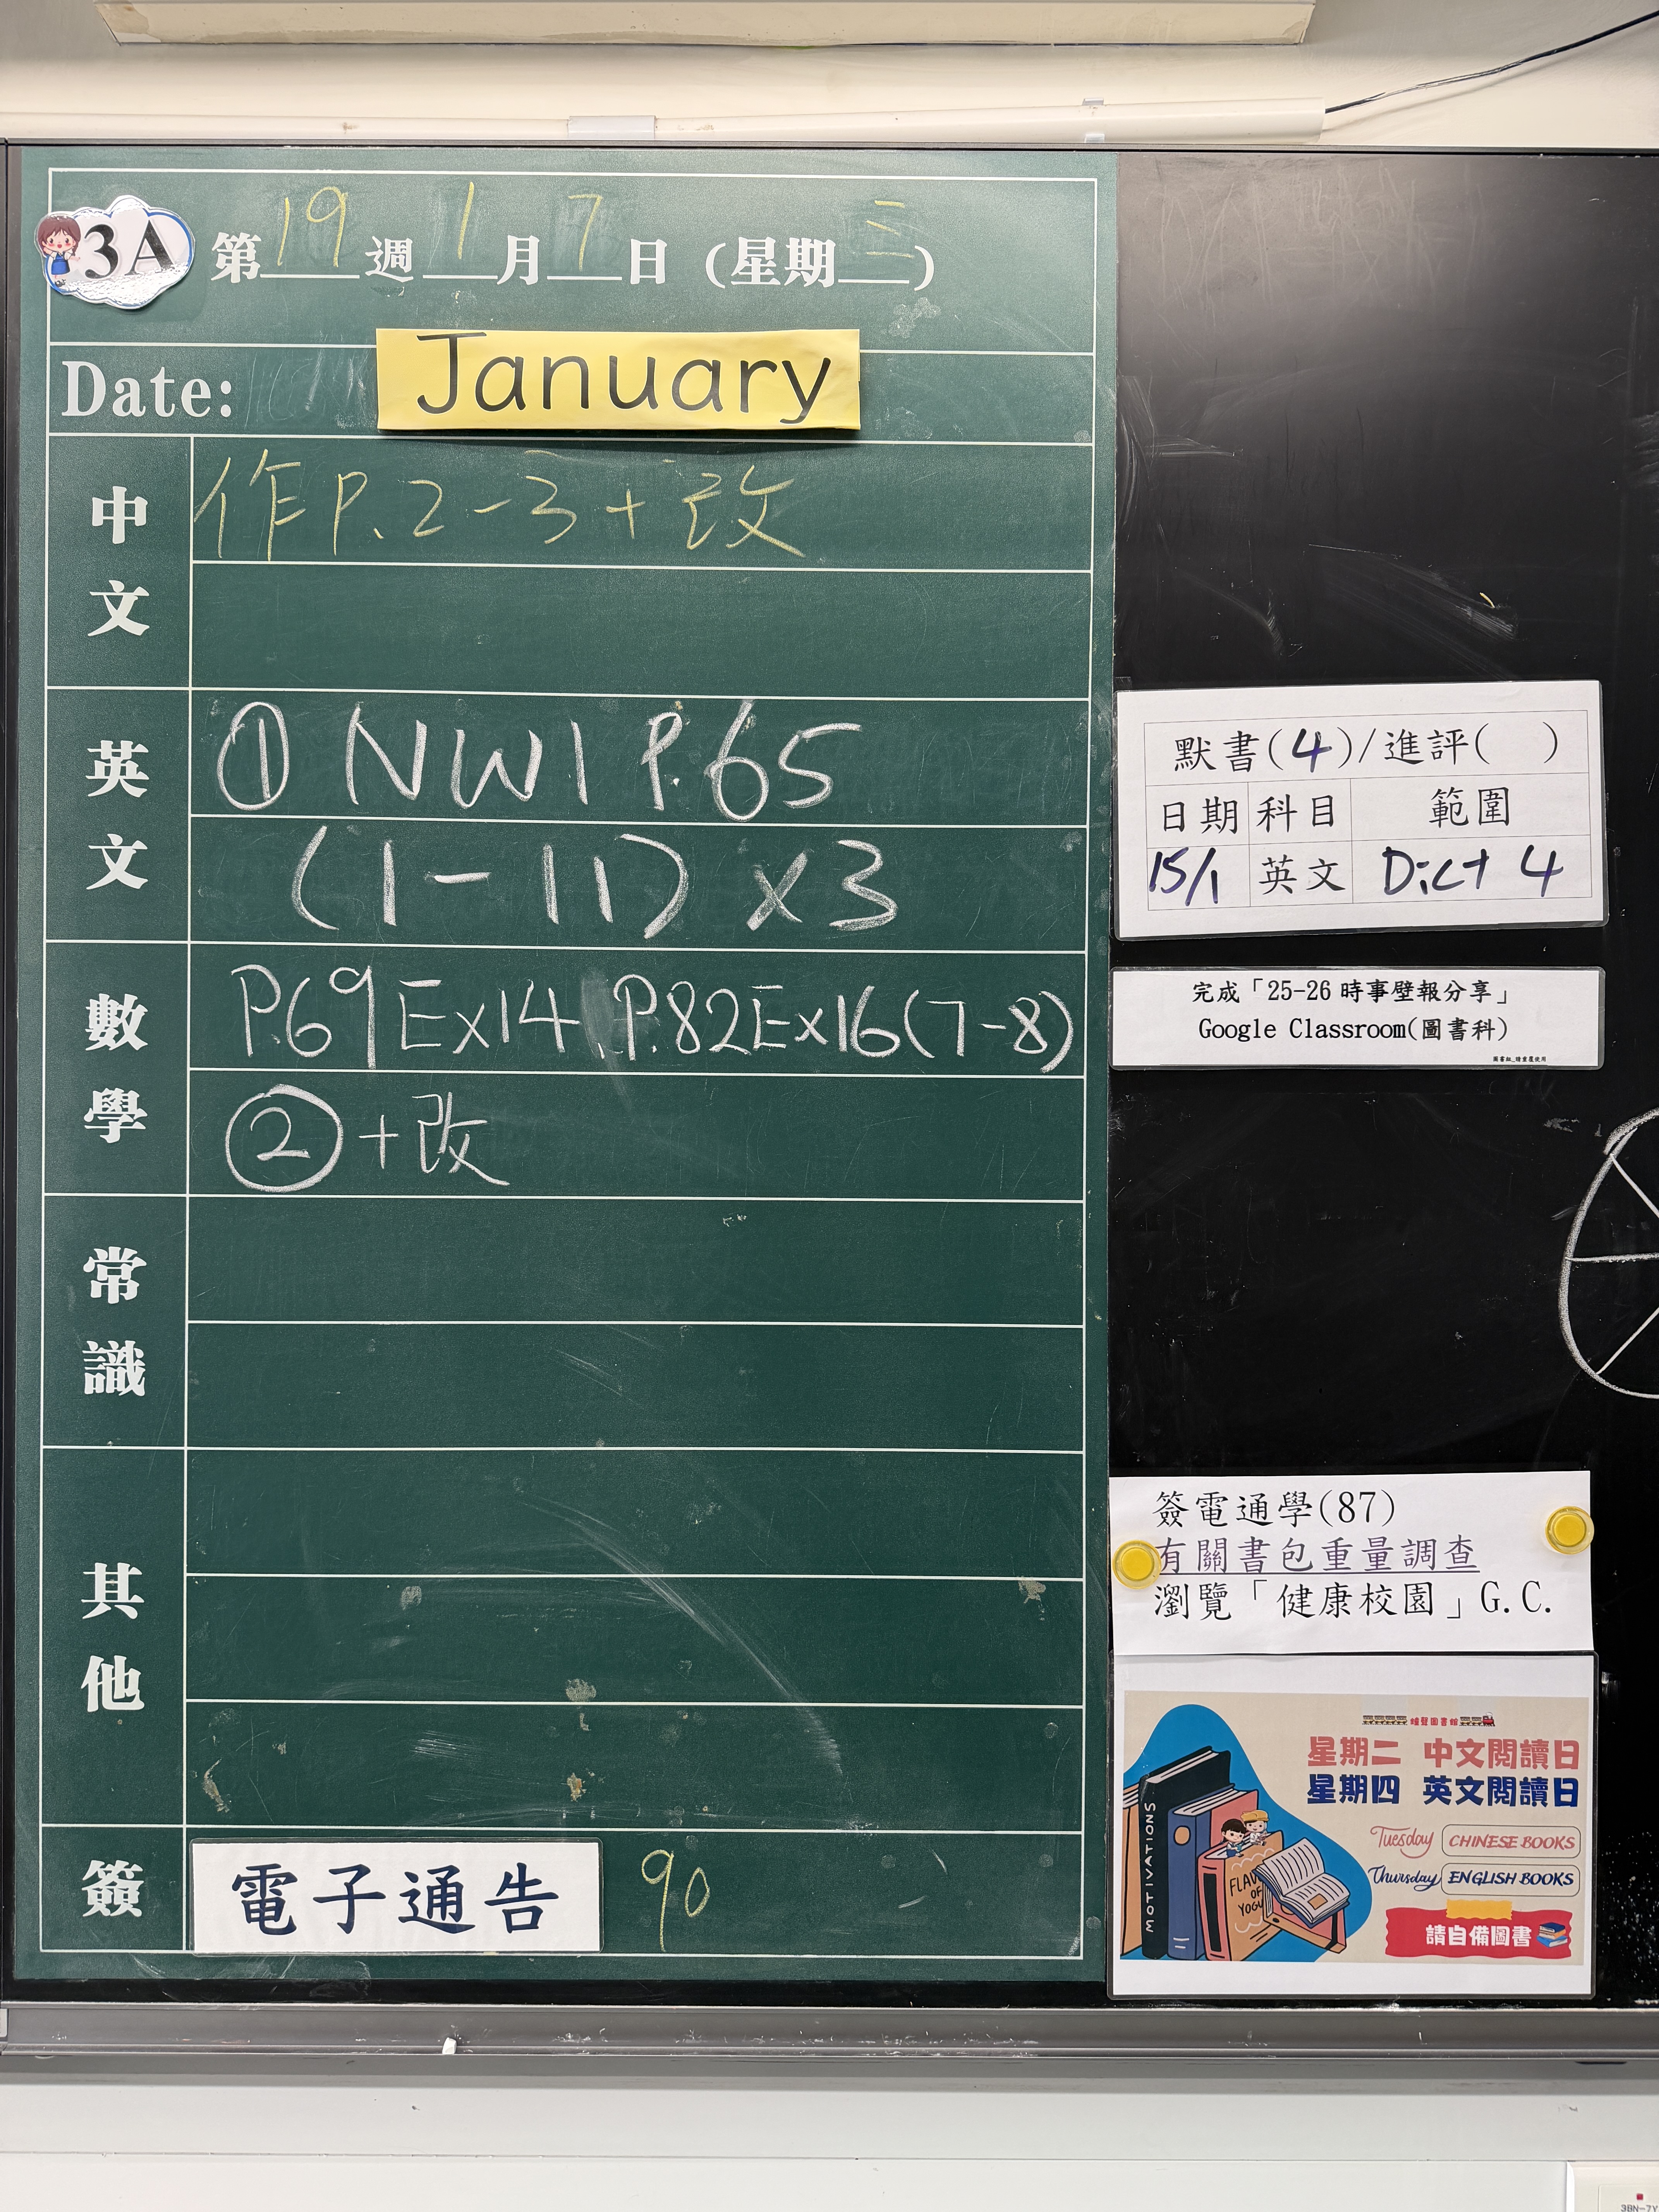 3A 第19週1月7日(星期三)
Date: January
中文
作P.2-3+改
英文
① NW1 P.65
(1-11)×3
數學
P.69Ex14, P.82Ex16(7-8)
②+改
常識
其他
簽 電子通告 90
默書(4)/進評( )
日期 科目 範圍
15/1 英文 Dict 4
完成「25-26 時事壁報分享」
Google Classroom(圖書科)
圖書組_請重覆使用
簽電通學(87)
有關書包重量調查
瀏覽「健康校園」G.C.
星期二 中文閱讀日
星期四 英文閱讀日
Tuesday CHINESE BOOKS
Thursday ENGLISH BOOKS
請自備圖書
MOTIVATIONS
FLAV
OF
YOGU